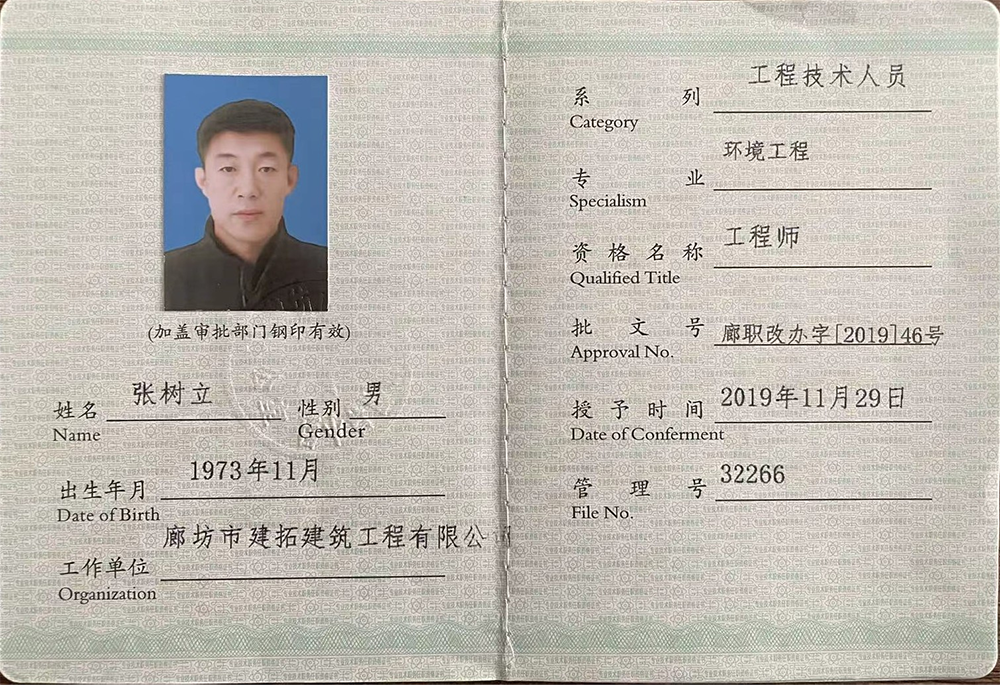 (加盖审批部门钢印有效)
姓名 张树立 性别 男
Name Gender
出生年月 1973年11月
Date of Birth
工作单位 廊坊市建拓建筑工程有限公司
Organization
系列 工程技术人员
Category
专业 环境工程
Specialism
资格名称 工程师
Qualified Title
批文号 廊职改办字[2019]46号
Approval No.
授予时间 2019年11月29日
Date of Conferment
管理号 32266
File No.